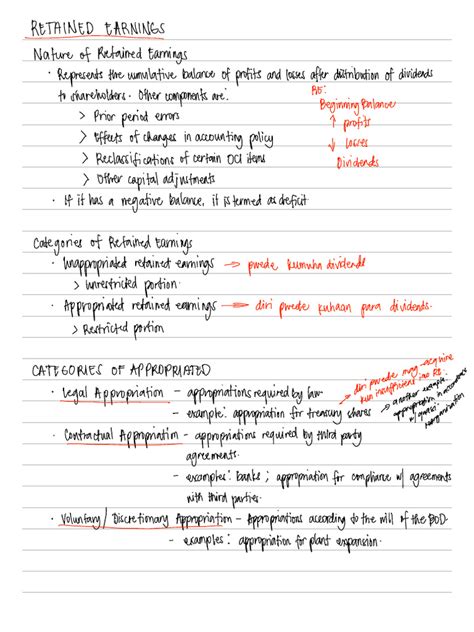 RETAINED EARNINGS
Nature of Retained Earnings
· Represents the cumulative balance of profits and losses after distribution of dividends
to shareholders. Other components are:
RE:
Beginning Balance
> Prior period errors
↑ profits
> Effects of changes in accounting policy
↓ losses
> Reclassifications of certain OCI items
Dividends
> Other capital adjustments
· If it has a negative balance, it is termed as deficit
Categories of Retained Earnings
· Unappropriated retained earnings → pwede kumuha dividends
> Unrestricted portion
· Appropriated retained earnings → diri pwede kuhaan para dividends.
> Restricted portion
CATEGORIES OF APPROPRIATED
· Legal Appropriation – appropriations required by law
– example: appropriation for treasury shares
→ diri pwede mag-acquire
kun insufficient imo RE.
→ another example:
appropriation in accordance
w/ quasi-
reorganization
· Contractual Appropriation – appropriations required by third party
agreements.
– examples: banks; appropriation for compliance w/ agreements
with third parties.
· Voluntary / Discretionary Appropriation – Appropriations according to the will of the BOD.
– examples: appropriation for plant expansion.